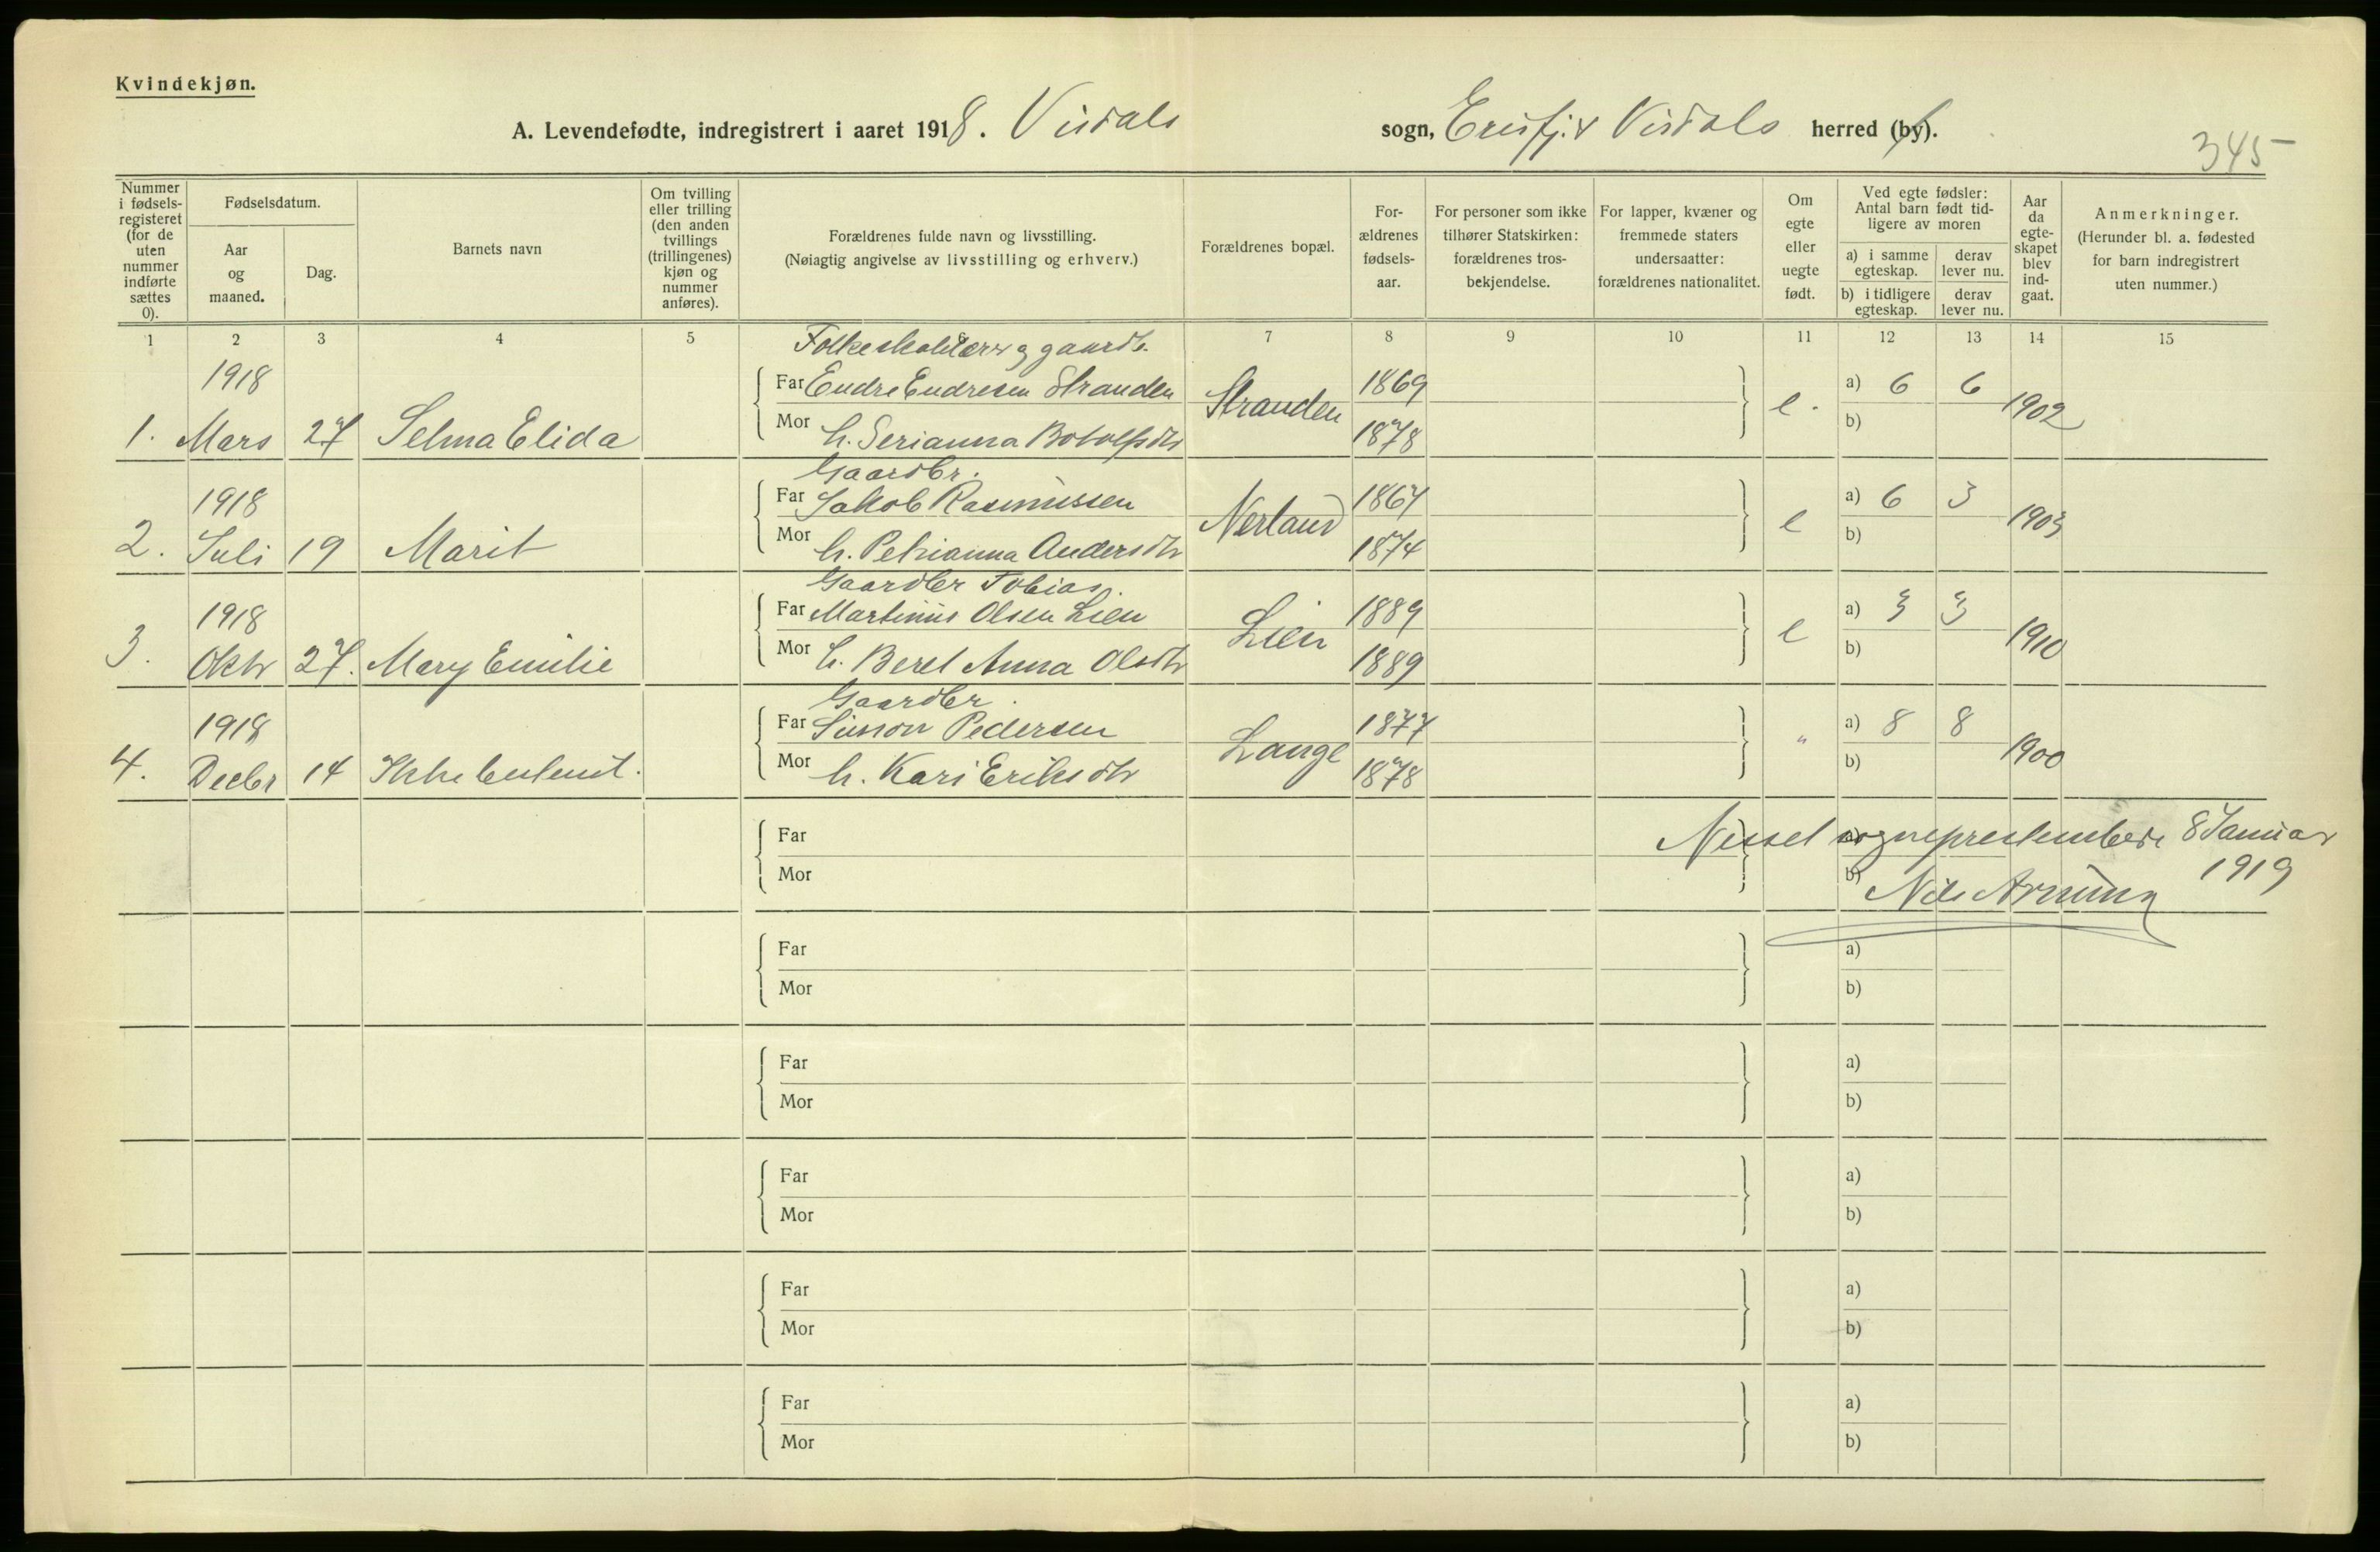 Kvindekjøn.
A. Levendefødte, indregistrert i aaret 1918. Visdals sogn, Erisfj. & Visdals herred (by).
345
Nummer i fødselsregisteret (for de uten nummer indførte sættes 0).
Fødselsdatum.
Aar og maaned.
Dag.
Barnets navn
Om tvilling eller trilling (den anden tvillings (trillingenes) kjøn og nummer anføres).
Forældrenes fulde navn og livsstilling.
(Nøiagtig angivelse av livsstilling og erhverv.)
Forældrenes bopæl.
Forældrenes fødselsaar.
For personer som ikke tilhører Statskirken: forældrenes trosbekjendelse.
For lapper, kvæner og fremmede staters undersaatter: forældrenes nationalitet.
Om egte eller uegte født.
Ved egte fødsler: Antal barn født tidligere av moren
a) i samme egteskap.
derav lever nu.
b) i tidligere egteskap.
derav lever nu.
Aar da egteskapet blev indgaat.
Anmerkninger.
(Herunder bl. a. fødested for barn indregistrert uten nummer.)
1 2 3 4 5 7 8 9 10 11 12 13 14 15
Folkeskolelærer og gaardb.
1918
Far Endre Endresen Stranden 1869 a) 6 6
1. Mars 27 Selma Elida Stranden e. 1902
Mor h. Serianna Botolfsdtr 1878 b)
Gaardbr.
1918
Far Jakob Rasmussen 1867 a) 6 3
2. Juli 19 Marit Nerland e 1903
Mor h. Petrianna Andersdtr 1874 b)
Gaardbr Tobias
1918
Far Martinus Olsen Lien 1889 a) 3 3
3. Oktr 27. Mary Emilie Lien e 1910
Mor h. Beret Anna Olsdtr 1889 b)
Gaardbr.
1918
Far Simon Pedersen 1877 a) 8 8
4. Decbr 14 Ikke bestemt. Lange " 1900
Mor h. Kari Eriksdtr 1878 b)
Far a)
Mor b)
Nesset sogneprestembede 8 Januar
1919
Nils
Far a)
Mor b)
Far a)
Mor b)
Far a)
Mor b)
Far a)
Mor b)
Far a)
Mor b)